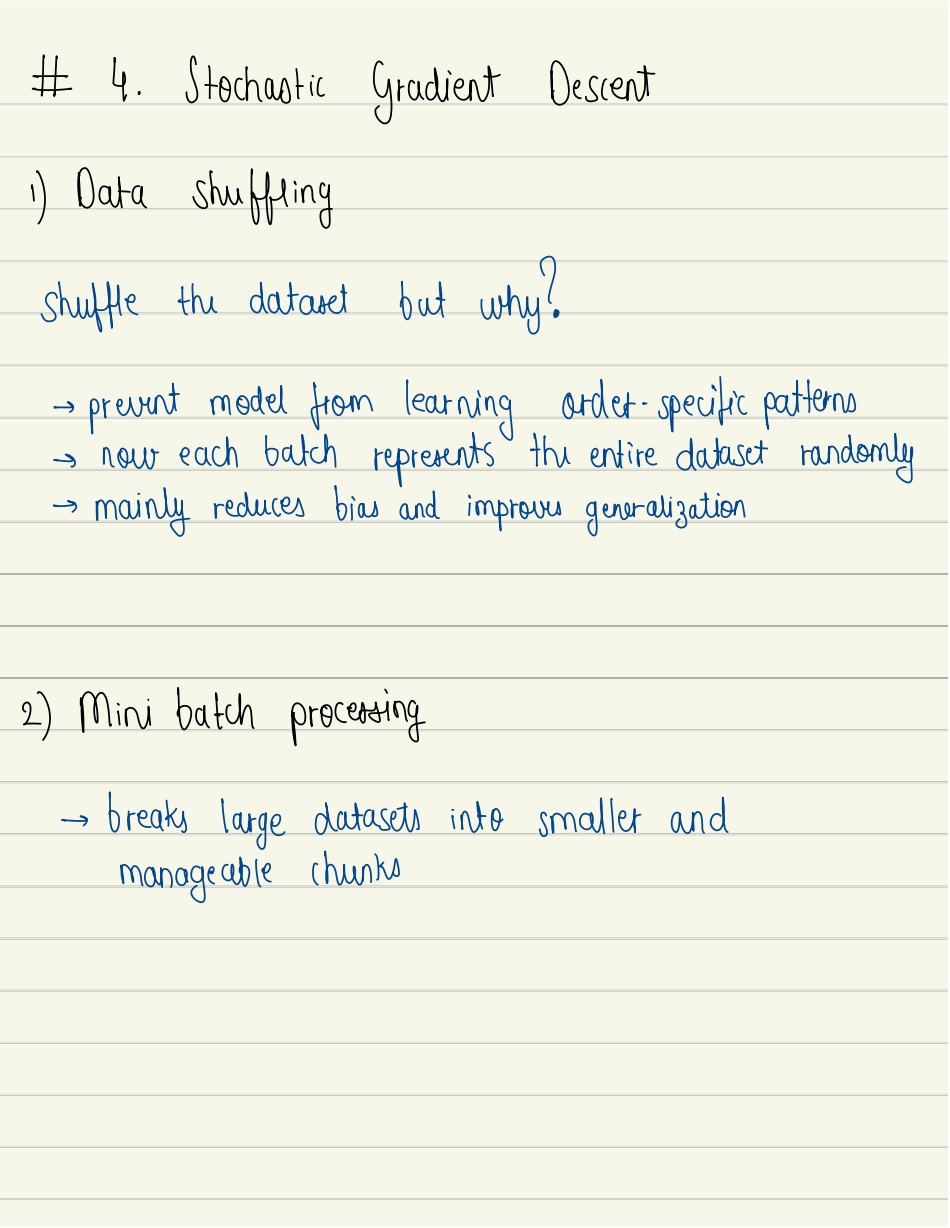 # 4. Stochastic Gradient Descent
1) Data shuffling
shuffle the dataset but why?
→ prevent model from learning order-specific patterns
→ now each batch represents the entire dataset randomly
→ mainly reduces bias and improves generalization
2) Mini batch processing
→ breaks large datasets into smaller and
manageable chunks